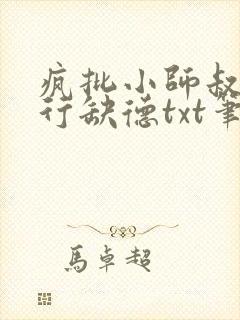 疯批小師叔
行缺德txt筆
馬卓超